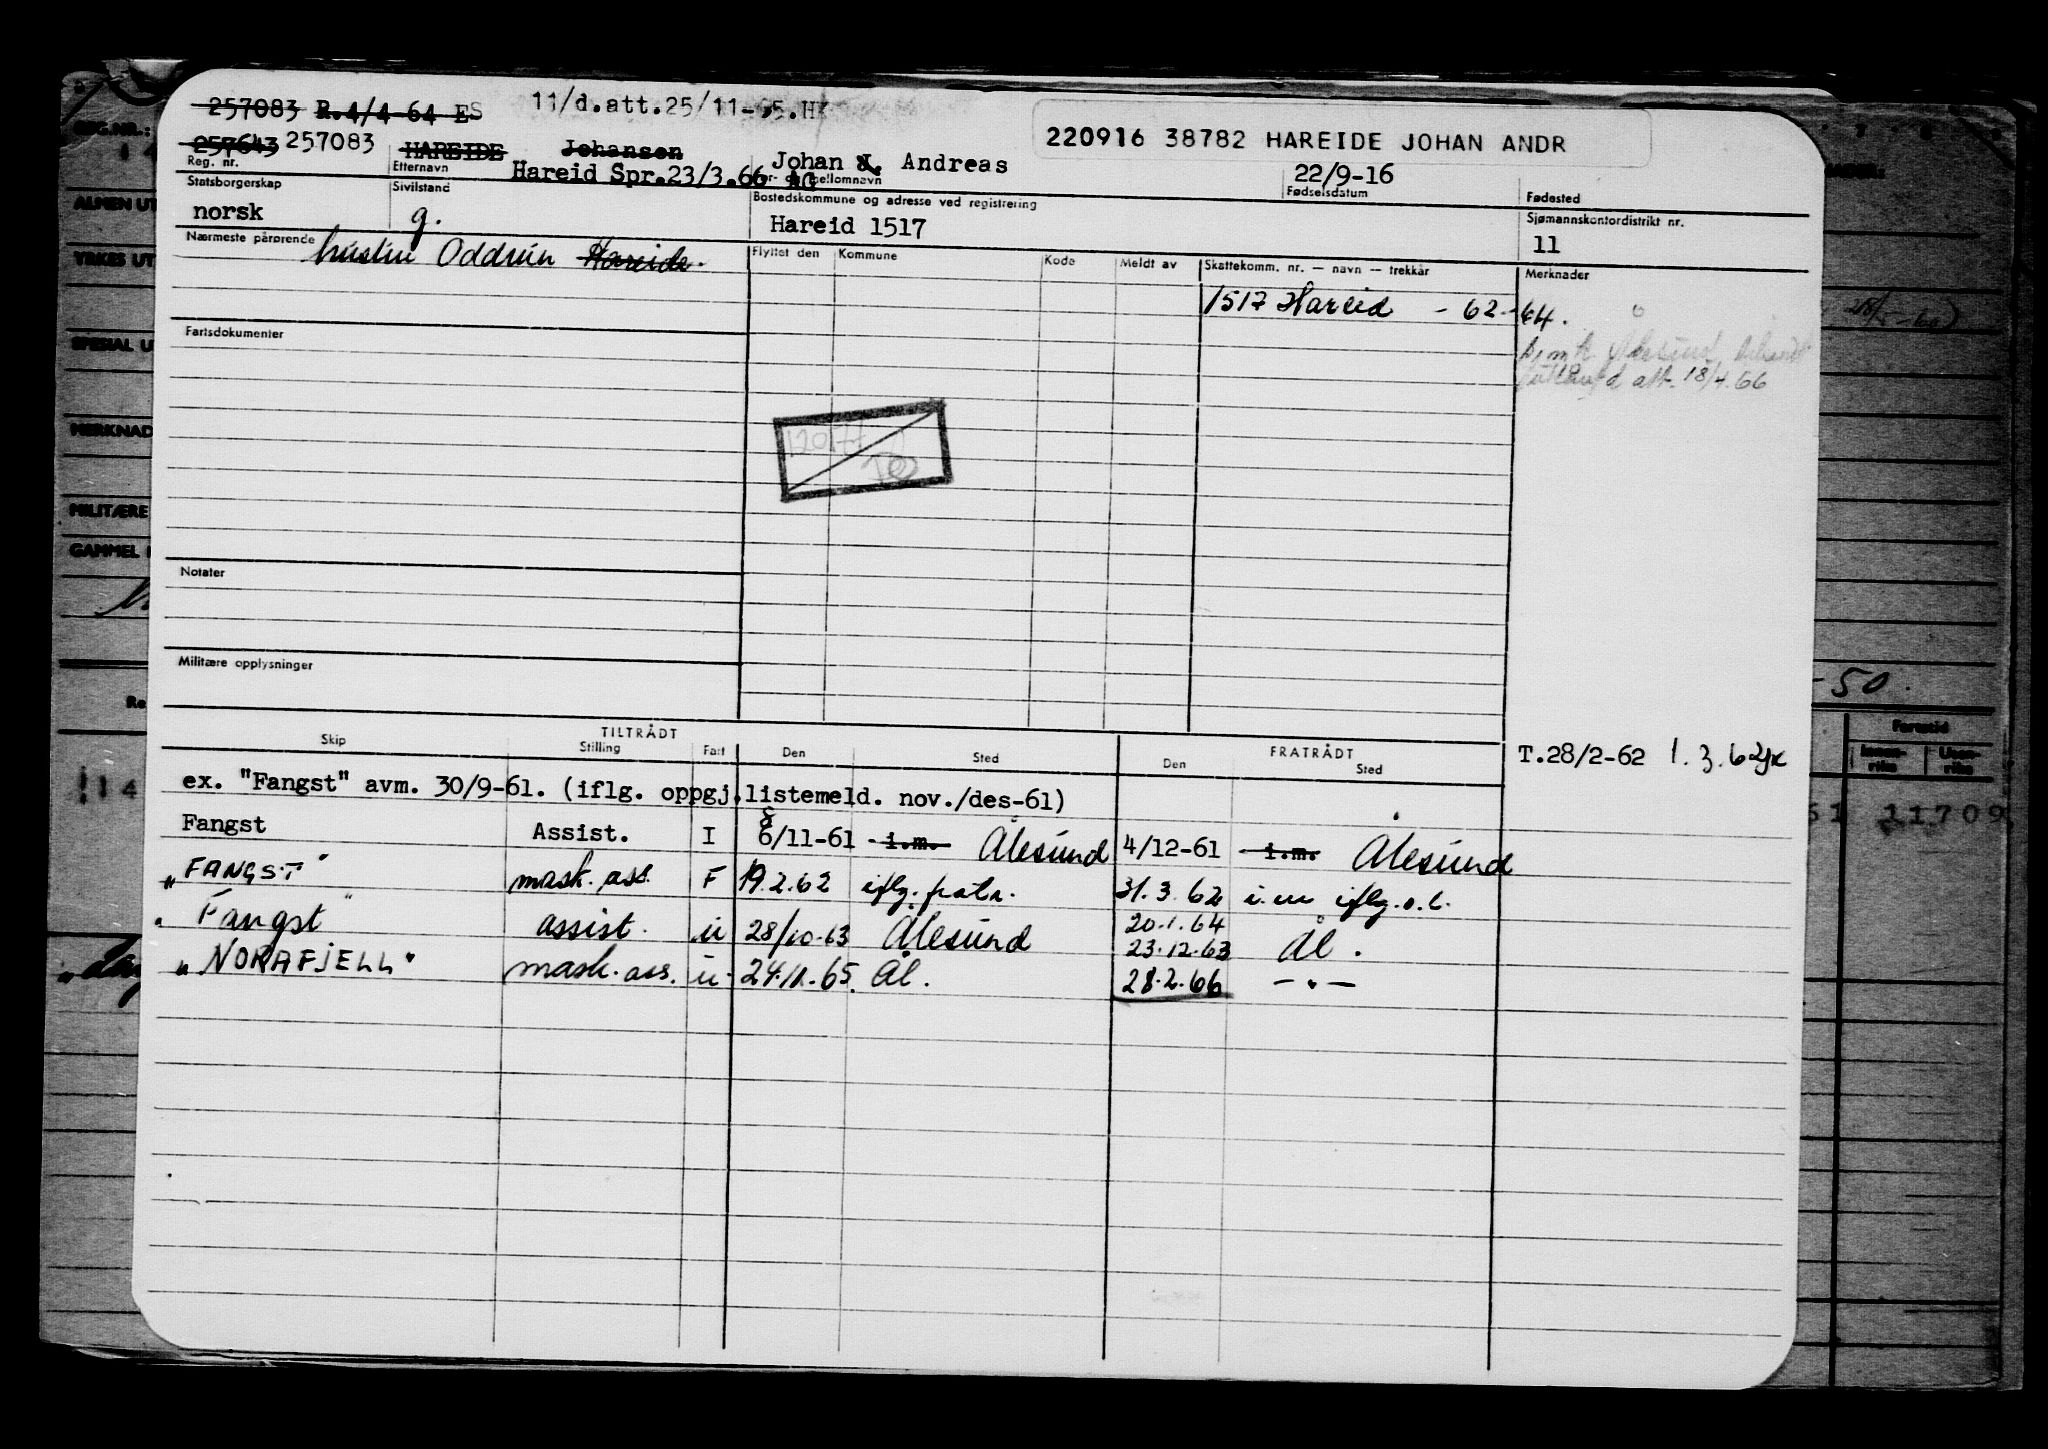 257083 R.4/4-64 ES 11/d.att.25/11-65.HK
220916 38782 HAREIDE JOHAN ANDR
257643 257083 HAREIDE Johansen Johan J. Andreas 22/9-16
Reg. nr. Etternavn Hareid Spr.23/3.66 AG For- og mellomnavn Fødselsdatum Fødested
Statsborgerskap Sivilstand Bostedskommune og adresse ved registrering Sjømannskontordistrikt nr.
norsk g. Hareid 1517 11
Nærmeste pårørende hustru Oddrun Hareide. Flyttet den Kommune Kode Meldt av Skattekomm. nr. — navn — trekkår Merknader
1517 Hareid - 62-64.
Fartsdokumenter
att. 18/4.66
Notater
Militære opplysninger
TILTRÅDT FRATRÅDT
Skip Stilling Fart Den Sted Den Sted
T.28/2-62 1.3.62
ex. "Fangst" avm. 30/9-61. (iflg. oppgj.listemeld. nov./des-61)
Fangst Assist. I 8 6/11-61 i.m. Ålesund 4/12-61 i.m. Ålesund
"FANGST" mask. ass. F 19.2.62 iflg. fratr. 31.3.62 i.m iflg. o.l.
"Fangst" assist. u 28/10-63 Ålesund 20.1.64 23.12.63 Ål.
"NORAFJELL" mask. ass. u 24.11.65. Ål. 28.2.66 — " —
REG.NR.:
ALMEN UT
YRKES UT
SPESIAL U
MERKNAD
MILITÆRE
GAMMEL
-50.
Fartstid
Innen-riks Uten-riks
61 11709